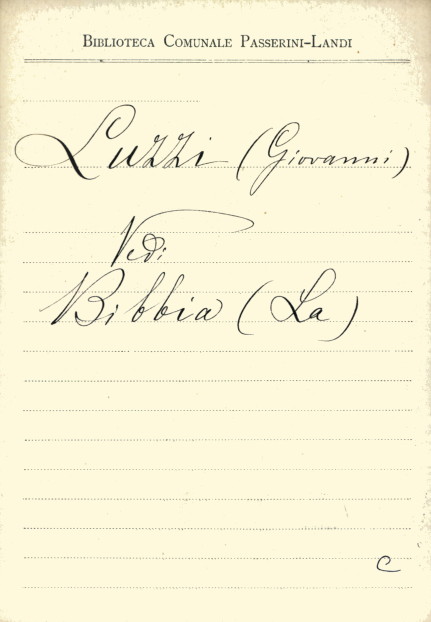 Biblioteca Comunale Passerini-Landi
Luzzi (Giovanni)
Vedi
Bibbia (La)
C